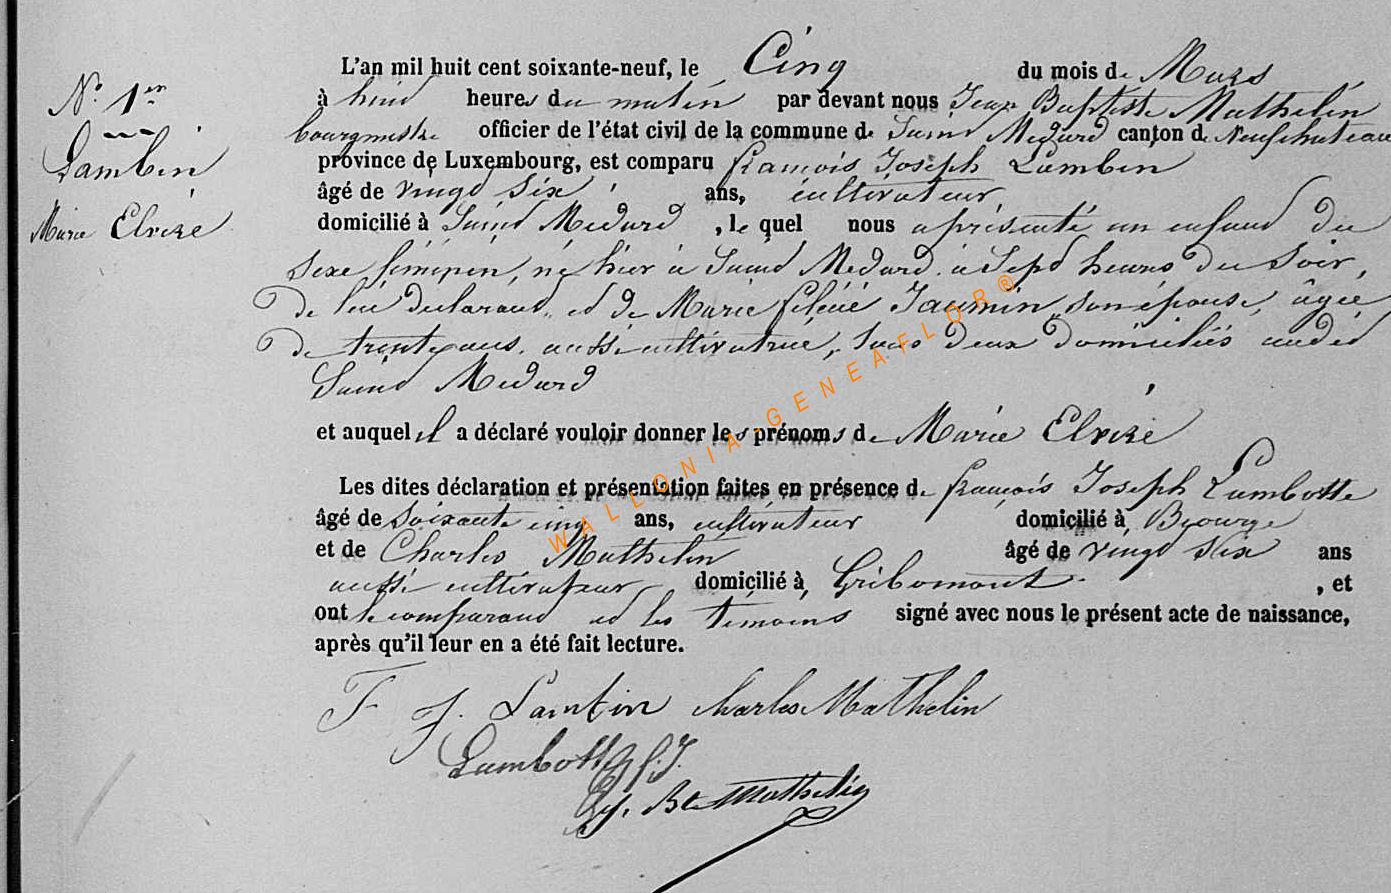 N° 1er
Lambin
Marie Elvire
L'an mil huit cent soixante-neuf, le Cinq du mois de Mars
à huit heures du matin par devant nous Jean Baptiste Mathelin
bourgmestre officier de l'état civil de la commune de Saint Medard canton de Neufchateau
province de Luxembourg, est comparu françois Joseph Lambin
âgé de vingt six ans, cultivateur,
domicilié à Saint Medard, lequel nous a présenté un enfant du
sexe féminin, né hier à Saint Medard à sept heures du soir,
de lui declarant, et de Marie Jaumin, son épouse, âgée
de trente ans, aussi cultivatrice, tous deux domiciliés audit
Saint Medard
et auquel il a déclaré vouloir donner les prénoms de Marie Elvire
Les dites déclaration et présentation faites en présence de françois Joseph Lambotte
âgé de soixante cinq ans, cultivateur domicilié à
et de Charles Mathelin âgé de vingt six ans
aussi cultivateur domicilié à Gribomont, et
ont le comparant et les témoins signé avec nous le présent acte de naissance,
après qu'il leur en a été fait lecture.
F J. Lambin charles Mathelin
Lambotte f. J.
Bte Mathelin
WALLONIA-GENEAFLOR®